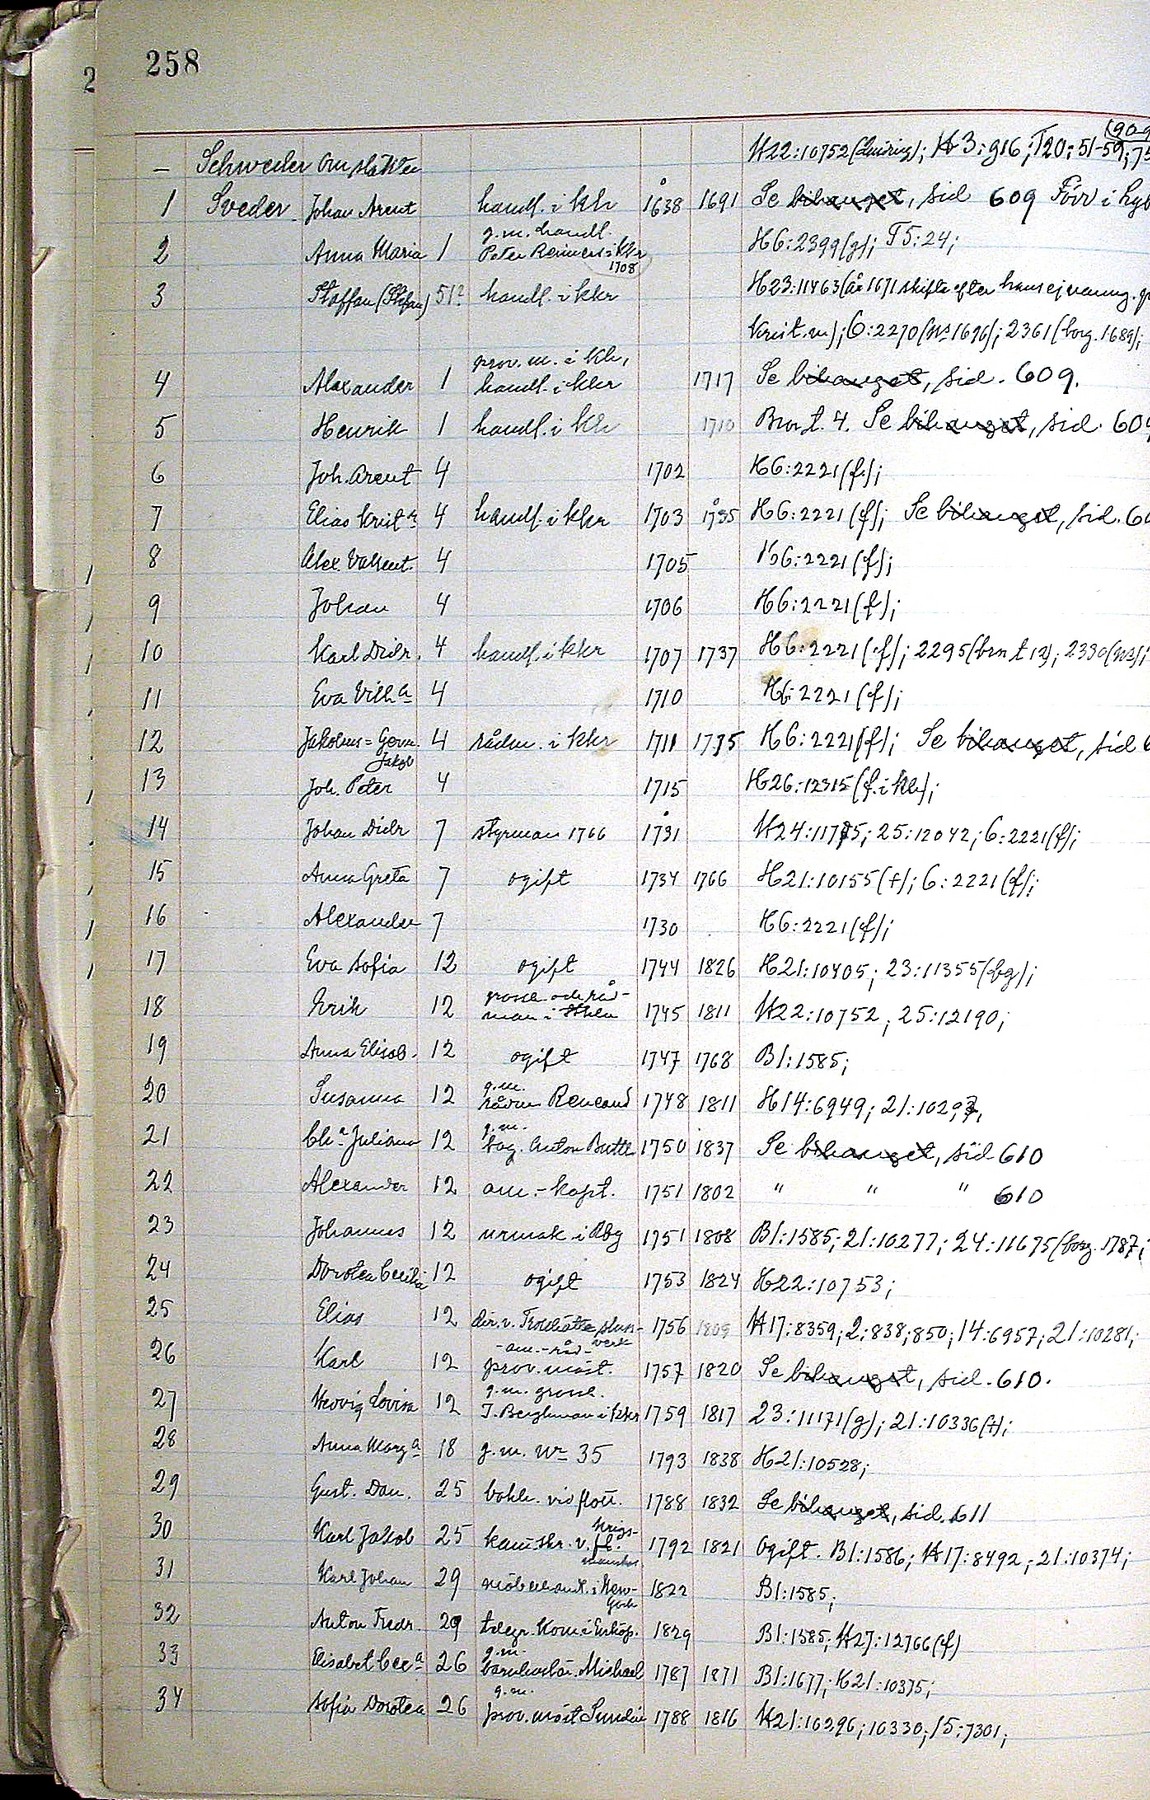 258
– Schweder om släkten H22:10752 ; H3:916; T20:51-59;
1 Sveder Johan Arent handl. i kkr 1638 1691 Se bihanget, sid 609
2 Anna Maria 1 g.m. handl. Peter Reimers i kkr 1708 H6:2399(g); T5:24;
3 Staffan (Stefan) 51? handl. i kkr H23:11463 (år 1671 skifte efter hans ej namng.
Krist.m); 6:2270(nr 1696); 2361(borg. 1689);
4 Alexander 1 prov.m. i kkr, handl. i kkr 1717 Se bihanget, sid. 609.
5 Henrik 1 handl. i kkr 1710 Brnt. 4. Se bihanget, sid. 609
6 Joh. Arent 4 1702 H6:2221(f);
7 Elias Krist:n 4 handl. i kkr 1703 1735 H6:2221(f); Se bihanget, sid.
8 Alex. Valent. 4 1705 H6:2221(f);
9 Johan 4 1706 H6:2221(f);
10 Karl Didr. 4 handl. i kkr 1707 1737 H6:2221(f); 2295(brnt 12); 2330
11 Eva Vilh:a 4 1710 H6:2221(f);
12 Jakobus = Jakob 4 rådm. i kkr 1711 1775 H6:2221(f); Se bihanget, sid
13 Joh. Peter 4 1715 H26:12315(f. i kkr);
14 Johan Didr 7 styrman 1766 1731 H24:11775; 25:12042; 6:2221(f);
15 Anna Greta 7 ogift 1734 1766 H21:10155(†); 6:2221(f);
16 Alexander 7 1730 H6:2221(f);
17 Eva Sofia 12 ogift 1744 1826 H21:10405; 23:11355(bg);
18 Erik 12 gross. och rådman i 1745 1811 H22:10752; 25:12190;
19 Anna Elisab. 12 ogift 1747 1768 B1:1585;
20 Susanna 12 g.m. rådm Rencand 1748 1811 H14:6949; 21:10293;
21 Ch:a Juliana 12 g.m. Anton Butte 1750 1837 Se bihanget, sid 610
22 Alexander 12 am.-kapt. 1751 1802 " " " 610
23 Johannes 12 urmak i Rbg 1751 1808 B1:1585; 21:10277; 24:11675(borg. 1787;
24 Dorotea Cecilia 12 ogift 1753 1824 H22:10753;
25 Elias 12 dir. v. Trollhätte slussverk 1756 1809 H17:8359; 2:838; 850; 14:6957; 21:10281;
26 Karl 12 -am.-råd- prov.mäst. 1757 1820 Se bihanget, sid. 610.
27 Hedvig Lovisa 12 g.m. gross. J. Berghman i kkr 1759 1817 23:11171(g); 21:10336(†);
28 Anna Marg:a 18 g.m. nr 35 1793 1838 H21:10528;
29 Gust. Dan. 25 bokh. vid flott. 1788 1832 Se bihanget, sid. 611
30 Karl Jakob 25 kam.skr. v. fl. krigsmanshus 1792 1821 Ogift. B1:1586; H17:8492; 21:10374;
31 Karl Johan 29 möbelhandl. i New-York 1822 B1:1585;
32 Anton Fredr. 29 telegr. kom. i Enköp. 1829 B1:1585; H27:12766(f)
33 Elisabet Cec:a 26 g.m. Michael 1787 1871 B1:1677; H21:10375;
34 Sofia Dorotea 26 g.m. prov.mäst Sundin 1788 1816 H21:10296; 10330; 15:7301;